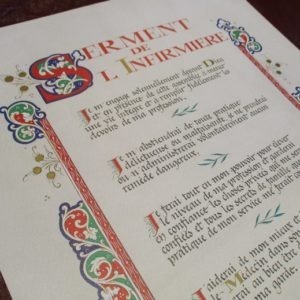 SERMENT
DE
L'INFIRMIÈRE
Je m'engage solennellement devant Dieu
et en présence de cette assemblée à mener
une vie intègre et à remplir fidèlement les
devoirs de ma profession.
Je m'abstiendrai de toute pratique
délictueuse ou malfaisante. Je ne prendrai
ou n'administrerai volontairement aucun
remède dangereux.
Je ferai tout en mon pouvoir pour élever
le niveau de ma profession et garderai
en confiance les choses privées qui me sont
confiées et tous les secrets de famille que la
pratique de mon service me ferait
J'aiderai de mon mieux
Médecin dans son
à ma garde